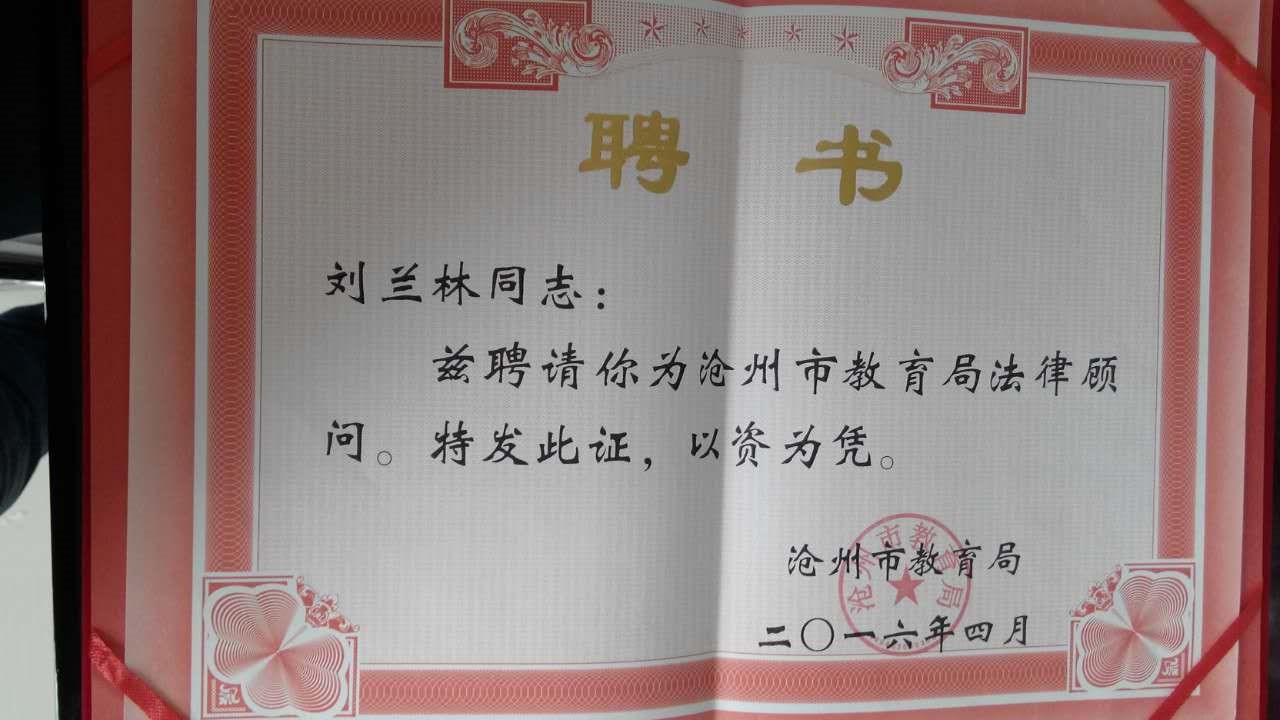 聘书
刘兰林同志：
兹聘请你为沧州市教育局法律顾
问。特发此证，以资为凭。
沧州市教育局
沧州市教育局
二〇一六年四月